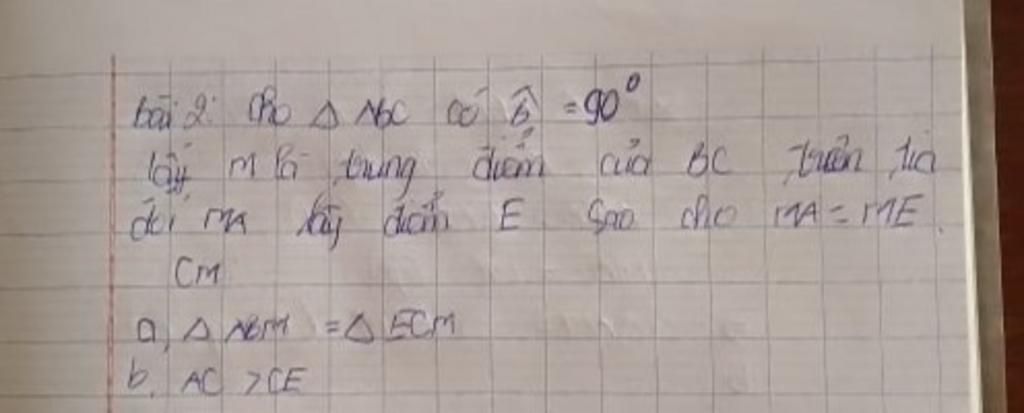 bài 2: Cho △ ABC có B̂ = 90°
lấy M là trung điểm của BC, trên tia
đối MA lấy điểm E sao cho MA = ME.
CM
a, △ ABM = △ ECM
b. AC > CE